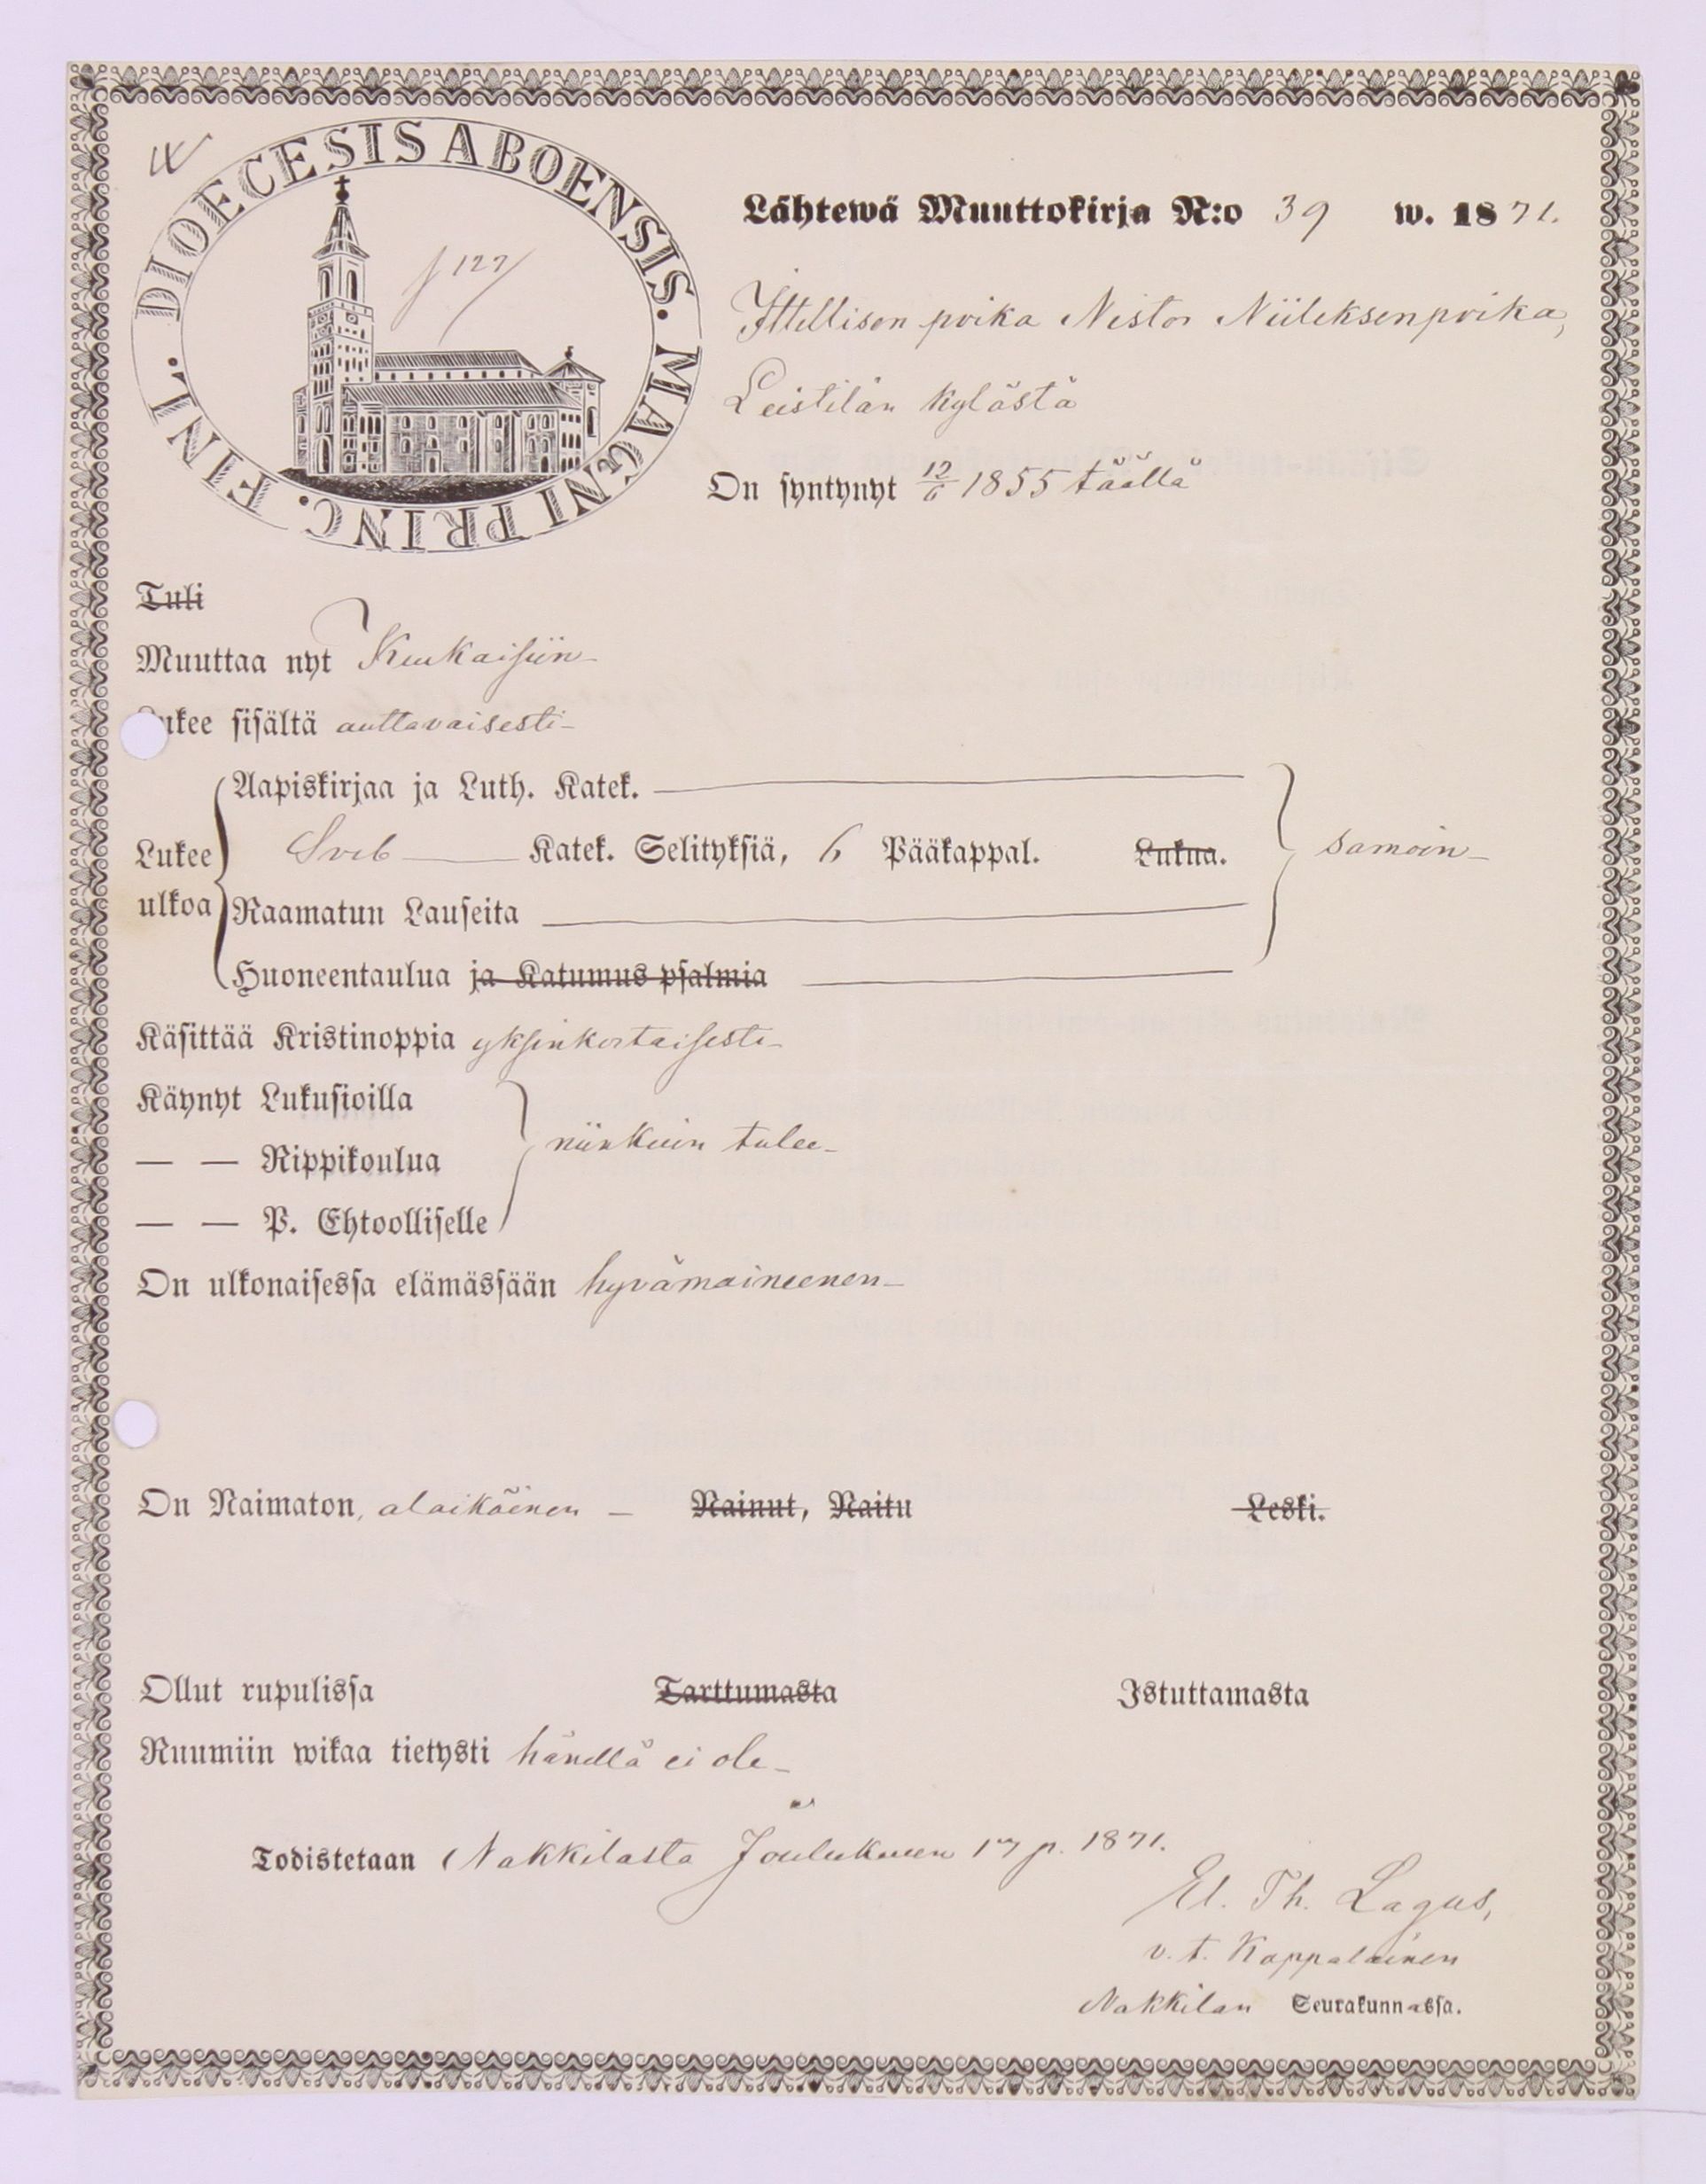 DIOECESIS ABOENSIS. MAGNI PRINC. FINL.
127
Lähtewä Muuttokirja N:o 39 w. 1871.
Ittellisen poika Nestor Niileksenpoika,
Leistilän kylästä
On syntynyt 12/6 1855 täällä
Tuli
Muuttaa nyt Kiukaisiin
ukee sisältä auttavaisesti
Aapiskirjaa ja Luth. Katek.
Lukee ulkoa
Sveb Katek. Selityksiä, 6 Pääkappal. Lukua. samoin
Raamatun Lauseita
Huoneentaulua ja Katumus psalmia
Käsittää Kristinoppia yksinkertaisesti
Käynyt Lukusioilla
— — Rippikoulua niinkuin tulee
— — P. Ehtoolliselle
On ulkonaisessa elämässään hyvämaineenen
On Naimaton, alaikäinen – Nainut, Naitu Leski.
Ollut rupulissa Tarttumasta Istuttamasta
Ruumiin wikaa tietysti hänellä ei ole
Todistetaan Nakkilasta Joulukuun 17 p. 1871.
El. Th. Lagus,
v. t. Kappalainen
Nakkilan Seurakunnassa.